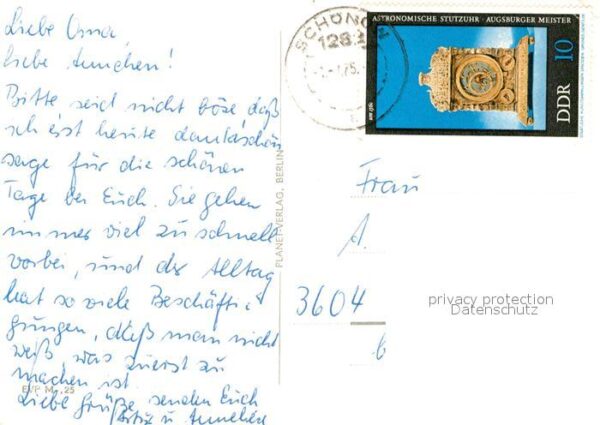 Liebe Oma
liebe Annchen!
Bitte seid nicht böse daß
ich erst heute Dankeschön
sage für die schönen
Tage bei Euch. Sie gehen
immer viel zu schnell
vorbei, und der Alltag
hat so viele Beschäfti-
gungen, daß man nicht
weiß was zuerst zu
machen ist.
Liebe Grüße senden Euch
u. Annchen
EVP M -,25
PLANET-VERLAG, BERLIN
SCHÖNOW
1281
75
ASTRONOMISCHE STUTZUHR · AUGSBURGER MEISTER
um 1560
DDR 10
Frau
A.
3604
privacy protection
Datenschutz